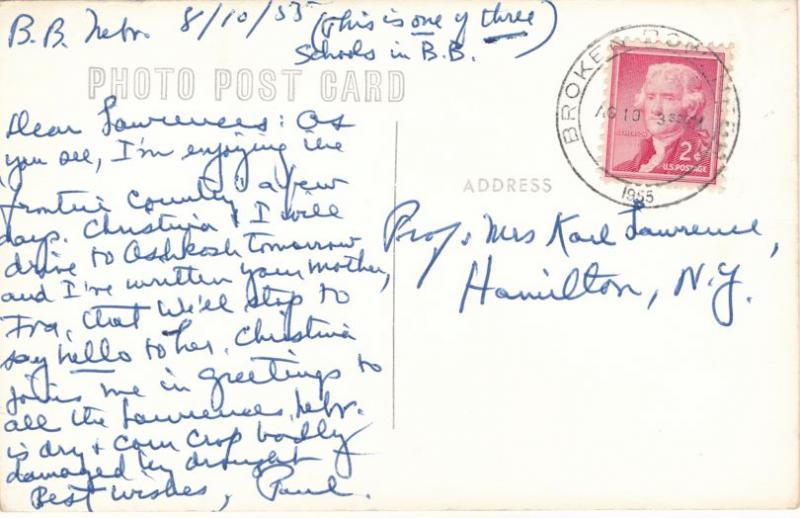 B.B. Nebr. 8/10/55 (This is one of three
Schools in B.B.)
PHOTO POST CARD
Dear Lawrences: As
you see, I'm enjoying the
frontier country a few
days. Christina & I will
drive to Oshkosh tomorrow
and I've written your mother,
Ira, that we'll stop to
say hello to her. Christina
joins me in greetings to
all the Lawrences. Nebr.
is dry & corn crop badly
damaged by drought
Best wishes, Paul.
BROKEN BOW
AUG 10
1955
2¢
U.S. POSTAGE
ADDRESS
Prof. & Mrs Karl Lawrence,
Hamilton, N.Y.